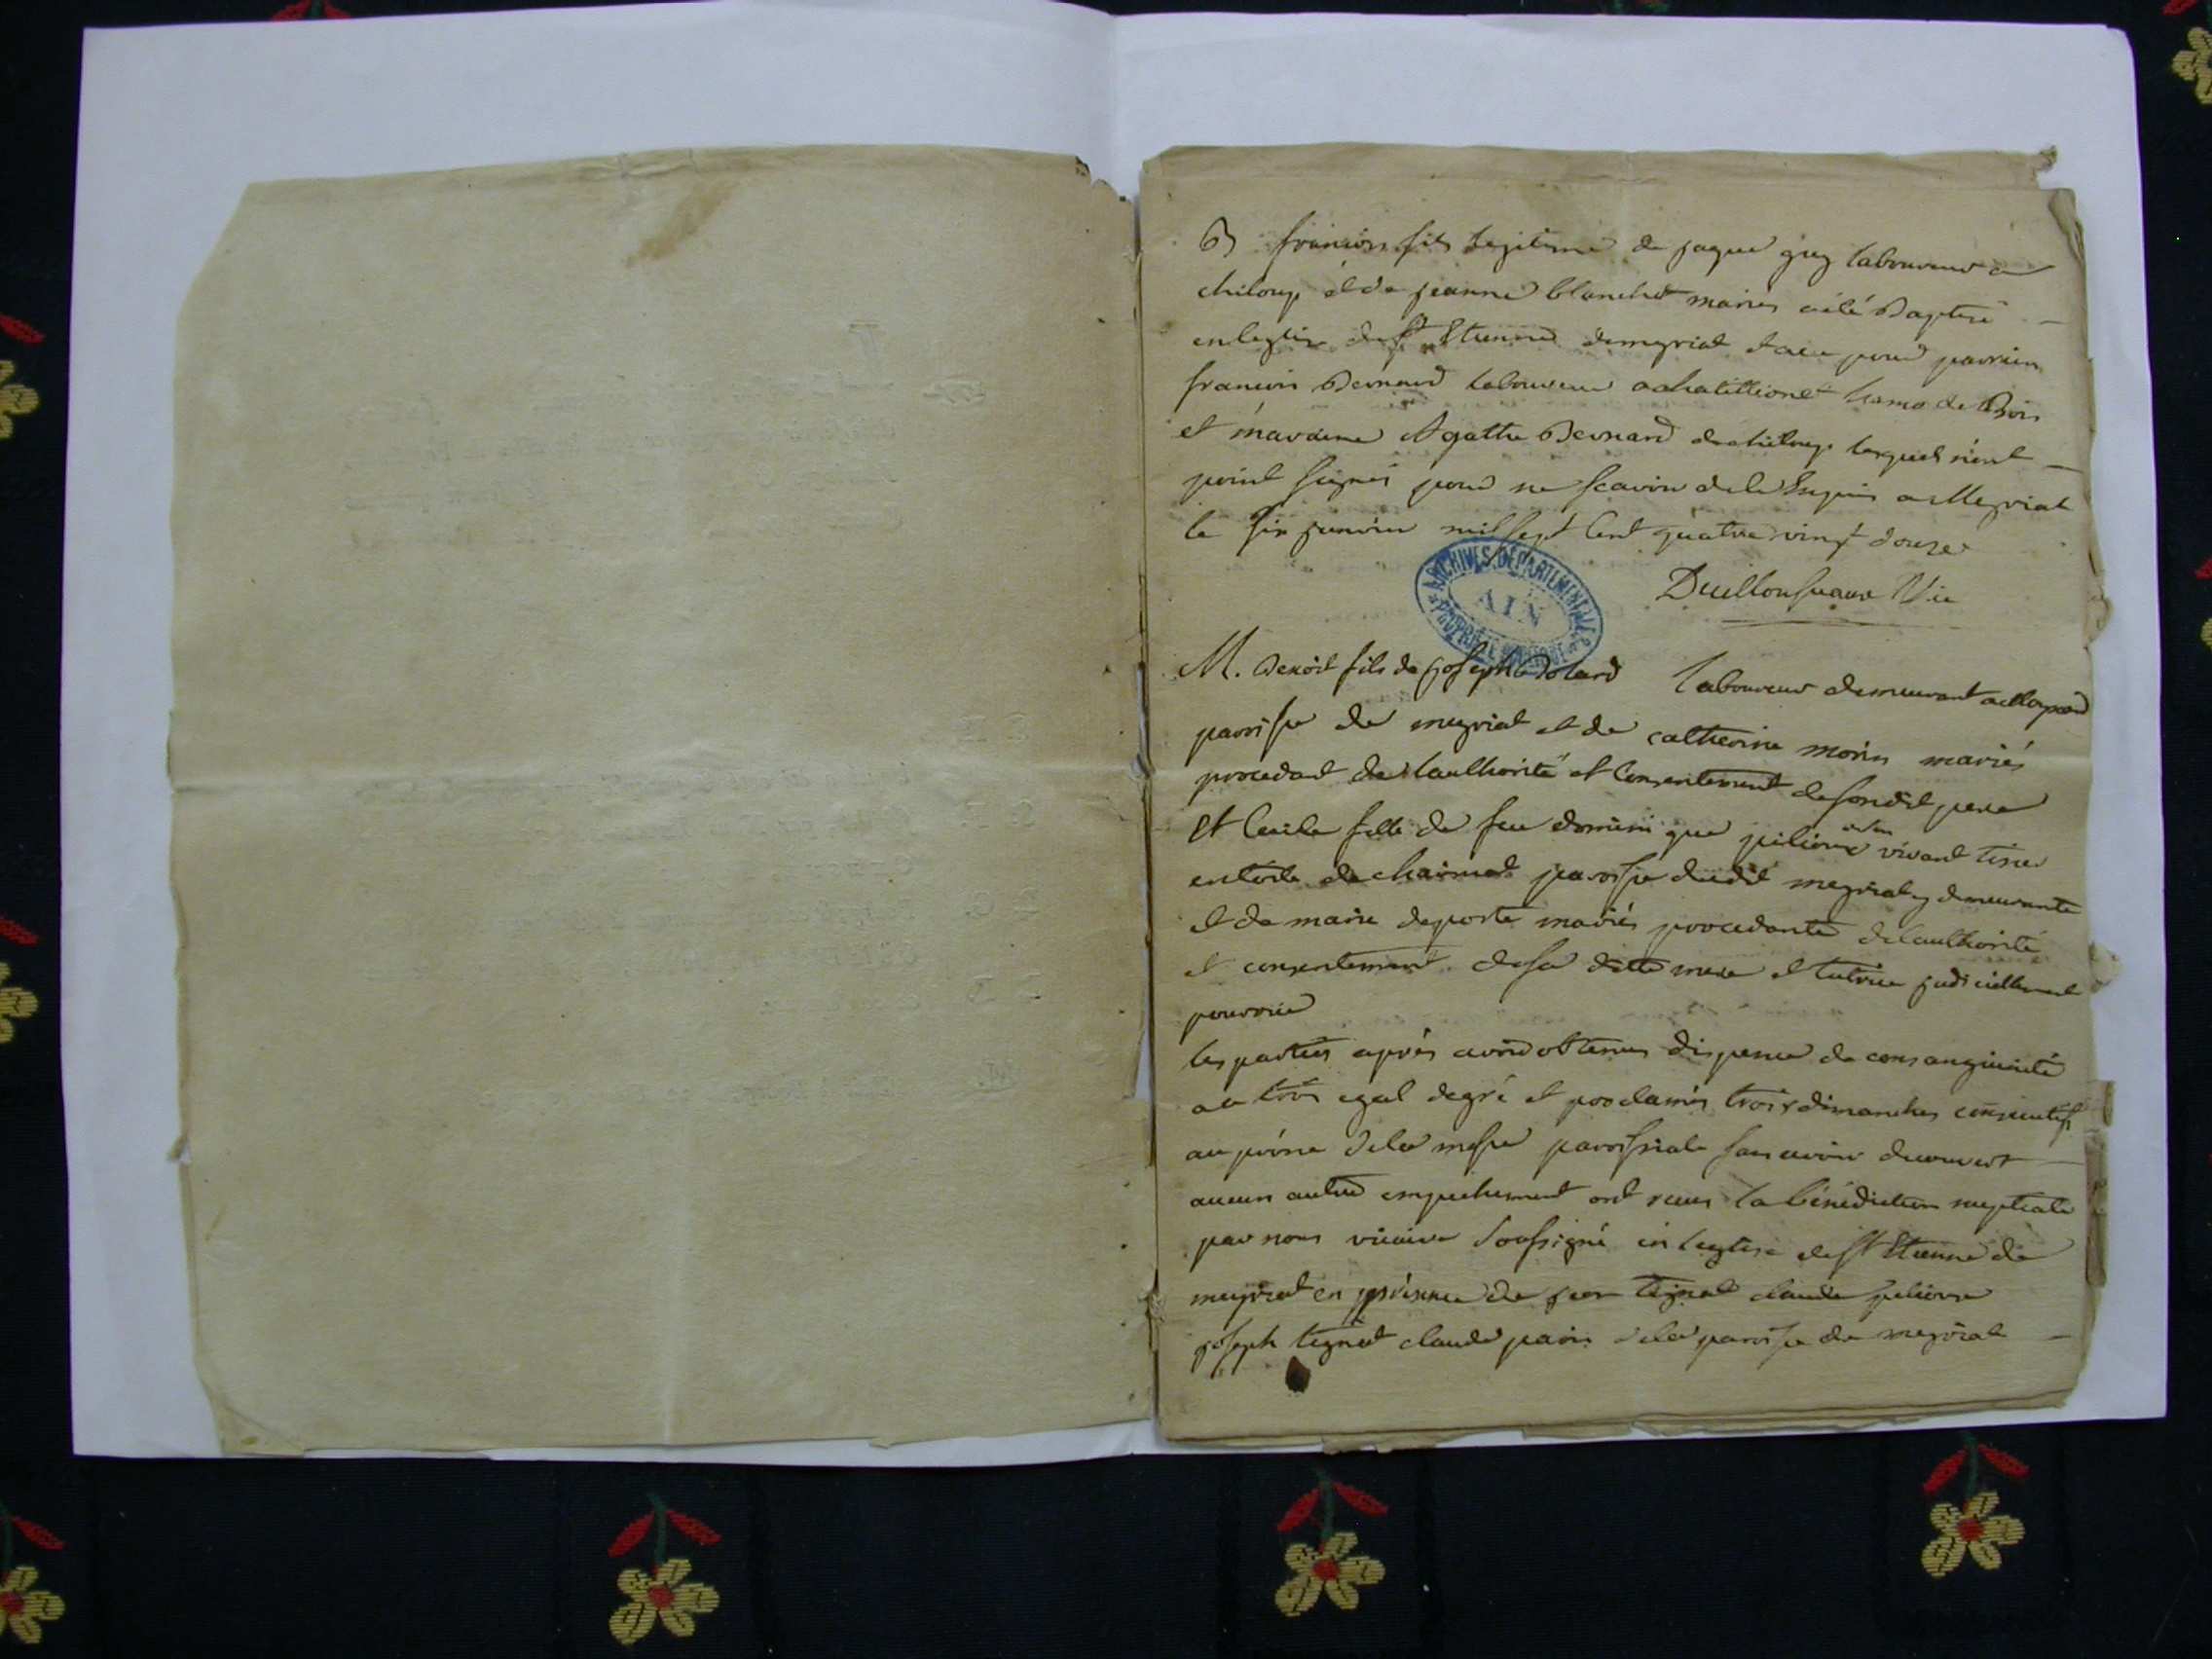 B françois fils legitime de jaque guy laboureur a
chiloup et de jeanne blanchet mariés a été Baptisé
en leglise de St Etienne de meyriat et a eu pour parrein
francois Bernard laboureur a chatillionet hamo de Bois
et maraine Agathe Bernard de chiloup lesquels n'ont
point signés pour ne scavoir de le Enquis a Meyriat
le six janvier mil sept Cent quatre vingt douze
Vic
ARCHIVES DEPARTEMENTALES
AIN
PROPRIETE PUBLIQUE
M. Benoit fils de joseph Bolard laboureur demeurant a
paroisse de meyriat et de catherine morin mariés
procedant de lauthorité et Consentement de sondit pere
Et Cecile fille de feu dominique vivant tisser
en toile de charinat paroisse dudit meyriat y demeurante
et de marie deporte mariés procedante de lauthorité
et consentement de sa ditte mere et tutrice judiciellement
pourvue
les parties après avoir obtenus dispense de consanguinité
au trois egal degré et proclamés trois dimanches consecutifs
au prône de la messe paroissiale sans avoir decouvert
aucun autre empechement ont reçus la bénédiction nuptiale
par nous vicaire soussigné en leglise de St Etienne de
meyriat en présence de tignat claude
joseph tignat claude de la paroisse de meyriat